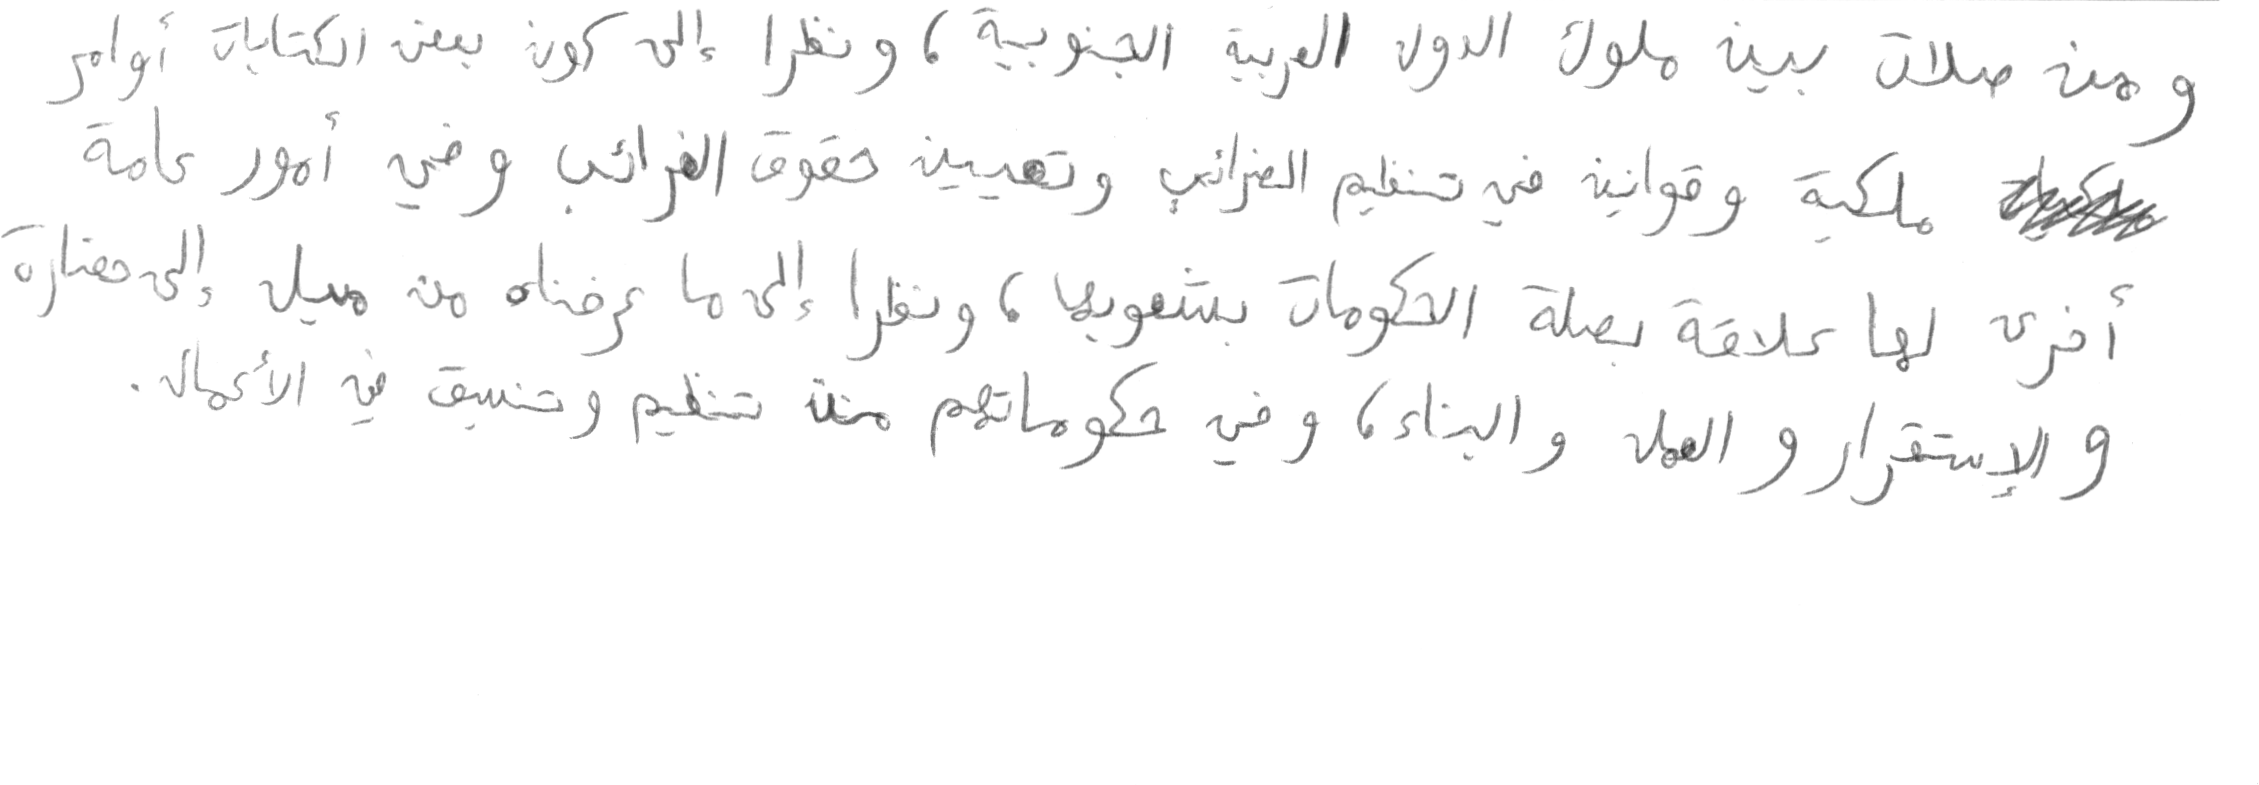 ومن صلات بين ملوك الدول العربية الجنوبية، ونظرا إلى كون بعض الكتابات أوامر
ملكية وقوانين في تنظيم الضرائب وتعيين حقوق الضرائب وفي أمور عامة
أخرى لها علاقة بصلة الحكومات بشعوبها، ونظرا إلى ما عرفناه من ميل إلى حضارة
والإستقرار والعمل والبناء، وفي حكوماتهم من تنظيم وتنسيق في الأعمال.